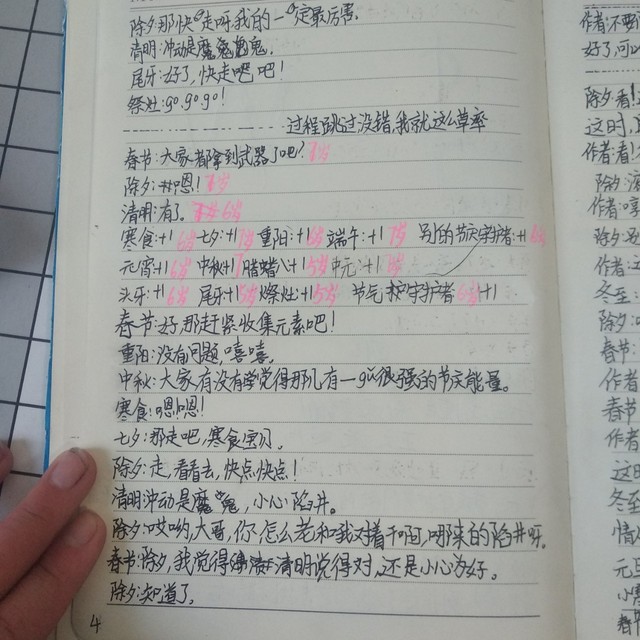 除夕:那快走呀,我的一定最厉害。
清明:冲动是魔鬼
尾牙:好了,快走吧吧!
祭灶:go go go!
过程跳过没错,我就这么草率
春节:大家都拿到武器了吧?7岁
除夕:嗯!7岁
清明:有了。6岁
寒食:+1 6岁 七夕:+1 重阳:+1 6岁 端午:+1 7岁 别的节庆守护者:+1 6岁
元宵+1 6岁 中秋+1 7 腊八+1 5岁 中元:+1
头牙:+1 6岁 尾牙+1 5岁 祭灶:+1 5岁 节气守护者 6岁+1
春节:好,那赶紧收集元素吧!
重阳:没有问题,嘻嘻。
中秋:大家有没有觉得那儿有一gǔ很强的节庆能量。
寒食:嗯!嗯!
七夕:那走吧,寒食宝贝。
除夕:走,看看去,快点,快点!
清明:冲动是魔鬼,小心陷井。
除夕:哎哟,大哥,你怎么老和我对着干啊,哪来的陷井呀。
春节:除夕,我觉得清明说得对,还是小心为好。
除夕:知道了。
4
作者:不要
好了,可以
除夕:看!
这时,
作者:看!
除夕:
作者:嘻
除夕:
作者:
冬至:
除夕:
春节:
作者
春节
作者
这时
冬至
情
元旦
小寒
春节